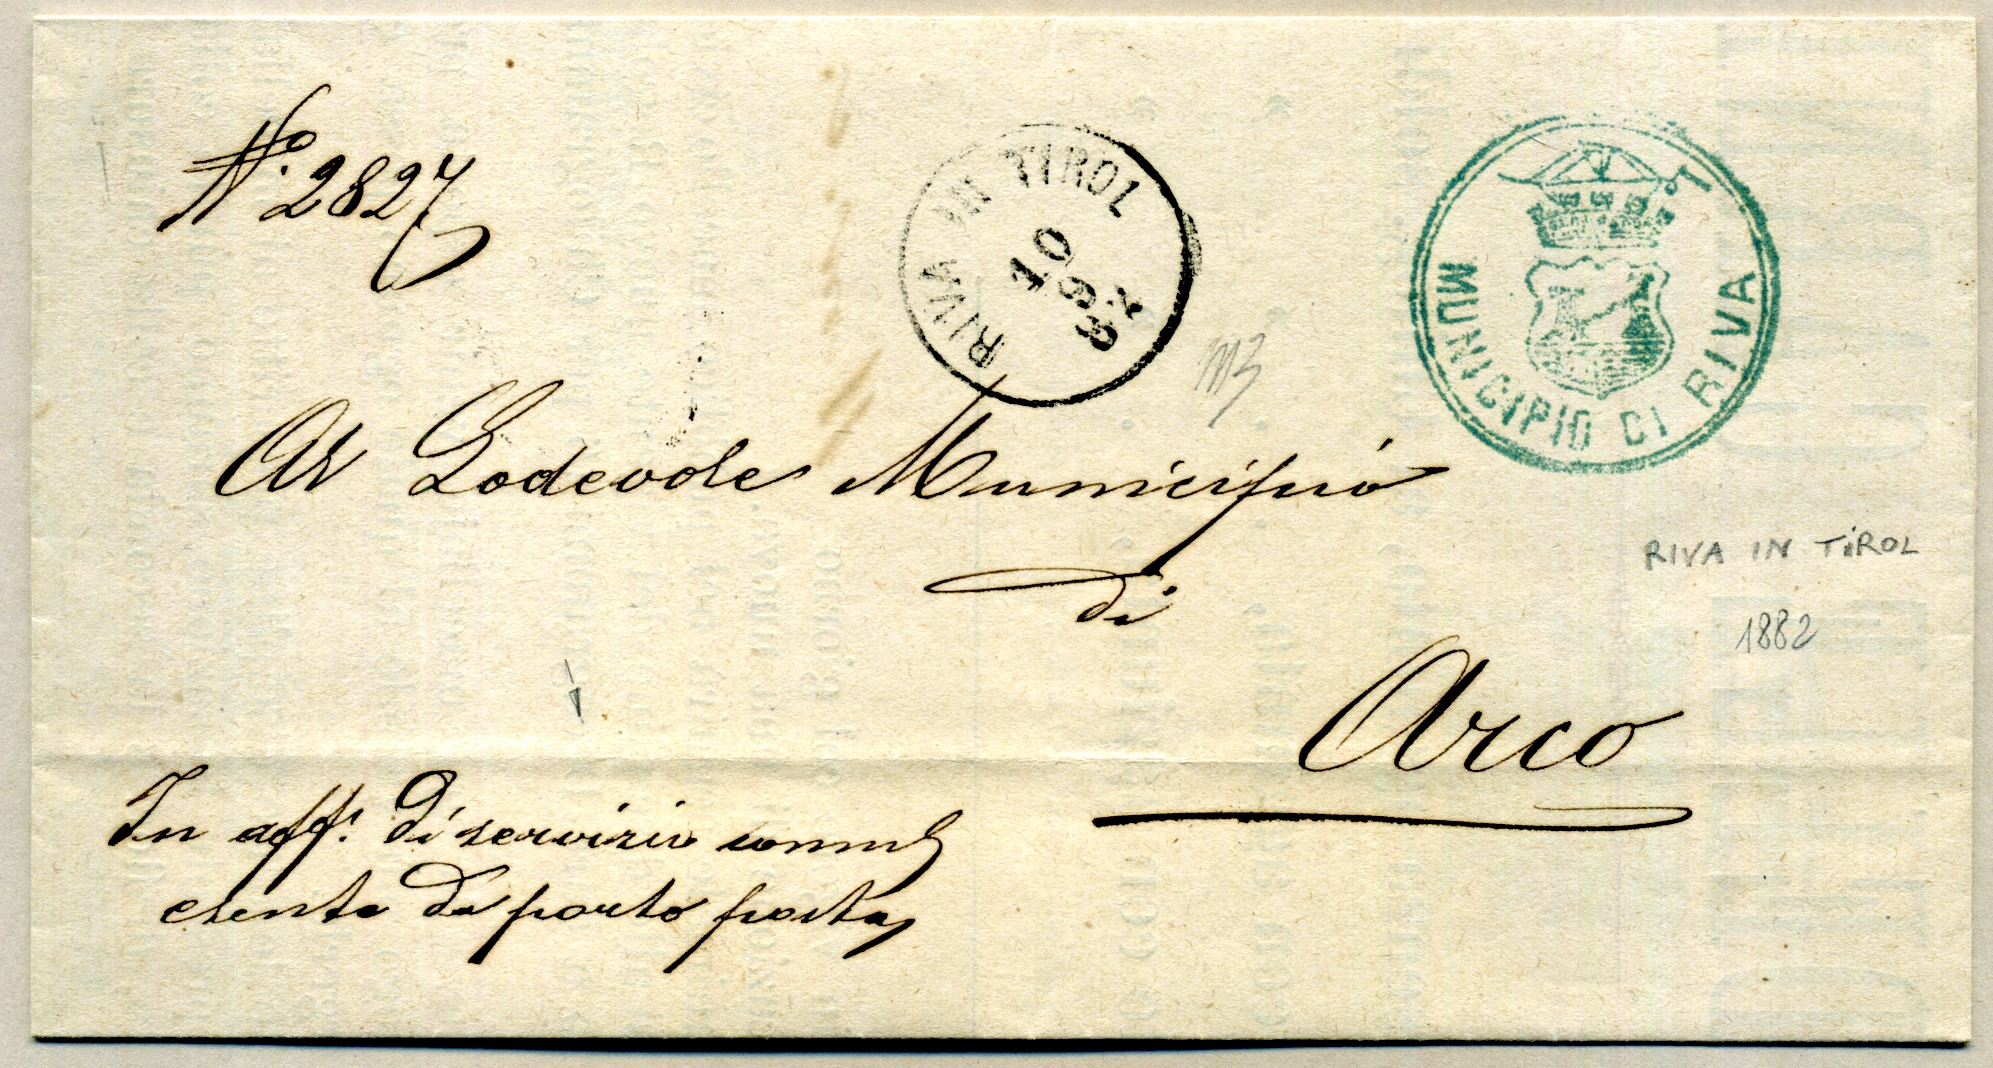 No. 2827
RIVA IN TIROL
10
9
82
MUNICIPIO DI RIVA
Al Lodevole Municipio
di
Arco
RIVA IN TIROL
1882
In aff. di servizio
esente da porto